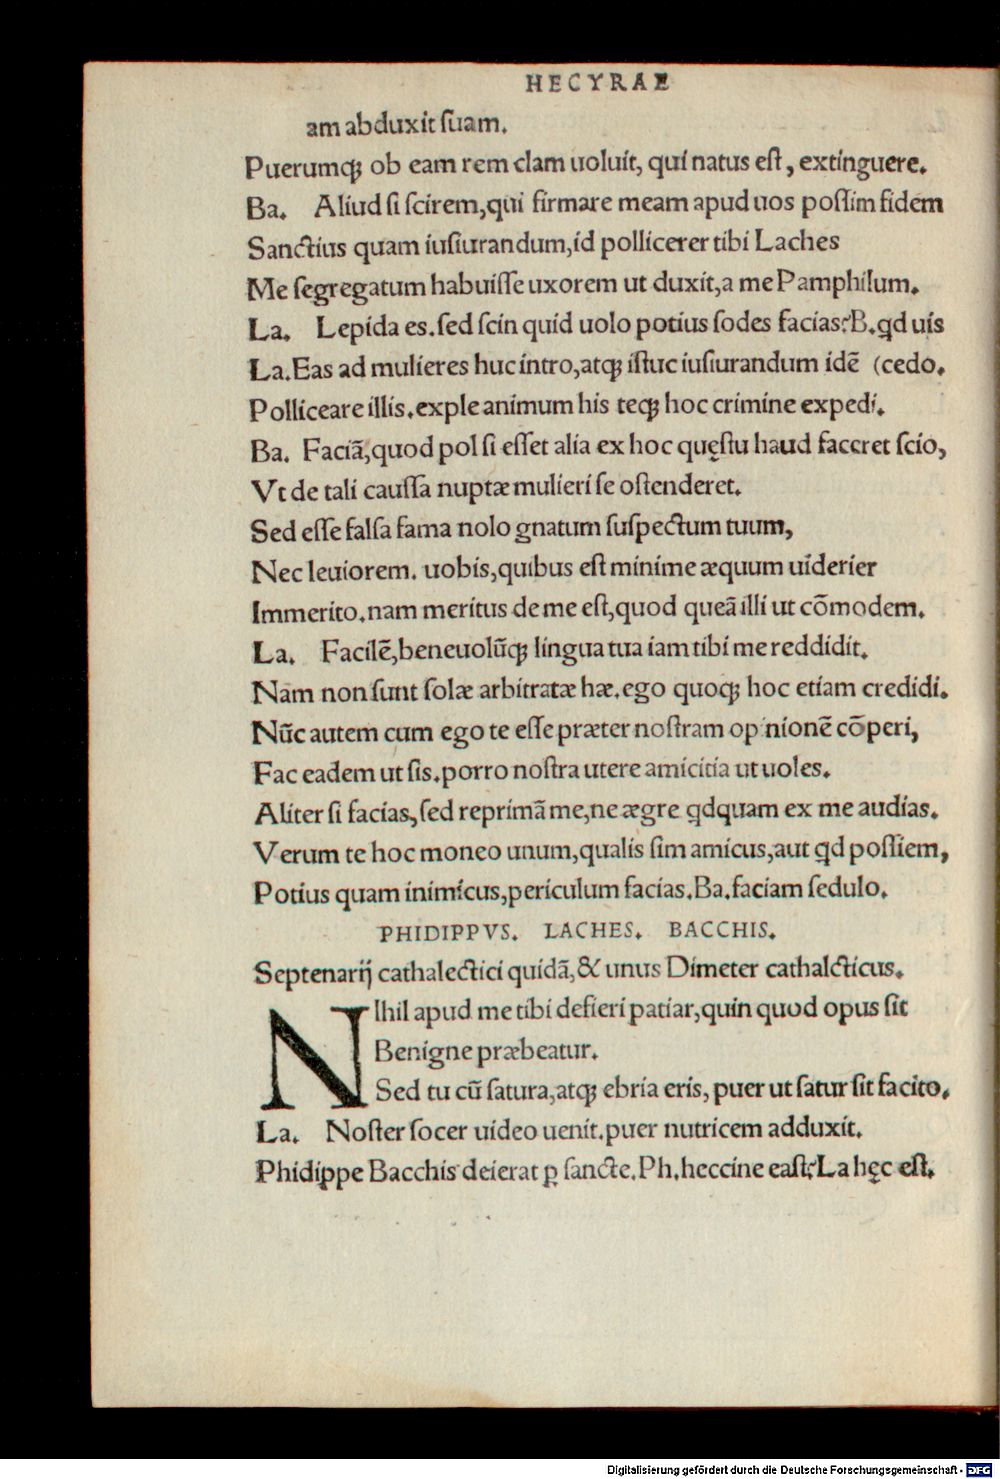 HECYRAE
am abduxit suam.
Puerumqꝫ ob eam rem clam uoluit, qui natus est, extinguere.
Ba. Aliud si scirem,qui firmare meam apud uos possim fidem
Sanctius quam iusiurandum,id pollicerer tibi Laches
Me segregatum habuisse uxorem ut duxit,a me Pamphilum.
La. Lepida es.sed scin quid uolo potius sodes facias?B.qd uis
La.Eas ad mulieres huc intro,atqꝫ istuc iusiurandum idē (cedo.
Polliceare illis.exple animum his teqꝫ hoc crimine expedi.
Ba. Faciā,quod pol si esset alia ex hoc quęstu haud faceret scio,
Vt de tali caussa nuptæ mulieri se ostenderet.
Sed esse falsa fama nolo gnatum suspectum tuum,
Nec leuiorem. uobis,quibus est minime æquum uiderier
Immerito.nam meritus de me est,quod queā illi ut cōmodem.
La. Facilē,beneuolūqꝫ lingua tua iam tibi me reddidit.
Nam non sunt solæ arbitratæ hæ.ego quoqꝫ hoc etiam credidi.
Nūc autem cum ego te esse præter nostram opinionē cōperi,
Fac eadem ut sis.porro nostra utere amicitia ut uoles.
Aliter si facias,sed reprimā me,ne ægre qdquam ex me audias.
Verum te hoc moneo unum,qualis sim amicus,aut qd possiem,
Potius quam inimicus,periculum facias.Ba.faciam sedulo.
PHIDIPPVS. LACHES. BACCHIS.
Septenarij cathalectici quidā,& unus Dimeter cathalcticus.
NIhil apud me tibi defieri patiar,quin quod opus sit
Benigne præbeatur.
Sed tu cū satura,atqꝫ ebria eris, puer ut satur sit facito.
La. Noster socer uideo uenit.puer nutricem adduxit.
Phidippe Bacchis deierat ꝑ sancte.Ph.heccine east?La hęc est.
Digitalisierung gefördert durch die Deutsche Forschungsgemeinschaft - DFG